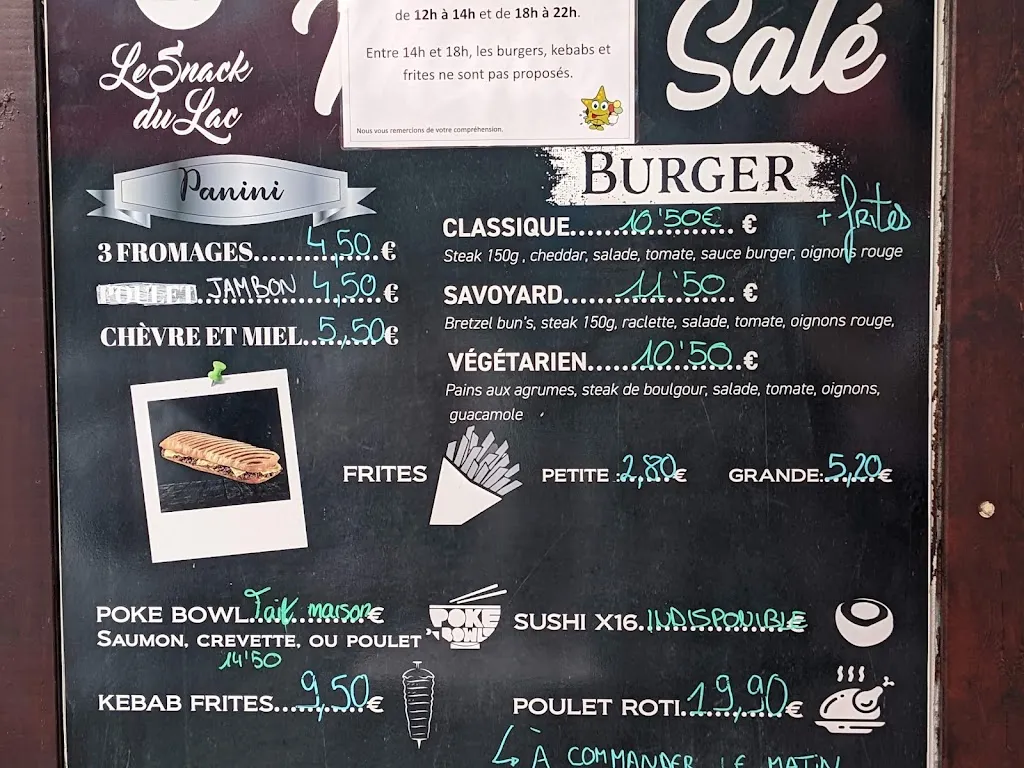 Le Snack
du Lac
de 12h à 14h et de 18h à 22h.
Entre 14h et 18h, les burgers, kebabs et
frites ne sont pas proposés.
Nous vous remercions de votre compréhension.
Salé
Panini
3 FROMAGES..............4,50.€
JAMBON 4,50.€
CHÈVRE ET MIEL...5,50€
BURGER
+ frites
CLASSIQUE......10'50€... €
Steak 150g , cheddar, salade, tomate, sauce burger, oignons rouge
SAVOYARD.......11'50.. €
Bretzel bun's, steak 150g, raclette, salade, tomate, oignons rouge,
VÉGÉTARIEN......10'50.€
Pains aux agrumes, steak de boulgour, salade, tomate, oignons,
guacamole
FRITES
PETITE :2,80€
GRANDE:.5,20€
POKE BOWL..Fait maison€
SAUMON, CREVETTE, OU POULET
14'50
POKE
BOWL
SUSHI X16.INDISPONIBLE€
KEBAB FRITES....9,50€
POULET ROTI.19,90€
↳ À COMMANDER LE MATIN